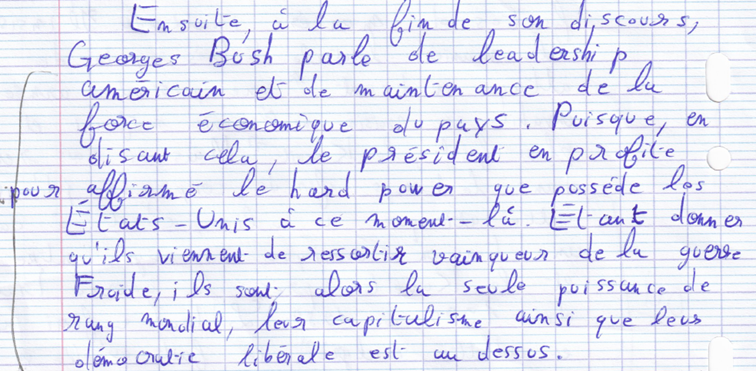 Ensuite, à la fin de son discours,
Georges Bush parle de leadership
americain et de maintenance de la
force économique du pays. Puisque, en
disant cela, le président en profite
pour affirmé le hard power que possède les
États-Unis à ce moment-là. Étant donner
qu'ils viennent de ressortir vainqueur de la guerre
Froide, ils sont alors la seule puissance de
rang mondial, leur capitalisme ainsi que leur
démocratie libérale est au dessus.